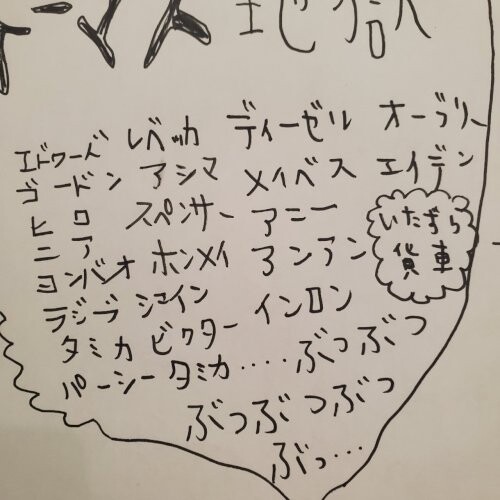 トーマス
エドワーズ レベッカ ディーゼル オーブリー
ゴードン アシマ メイベス エイデン
ヒロ スペンサー アニー
ニア ホンメイ アンアン
ヨンバオ シェイン インロン
ラジブ ビクター
タミカ タミカ‥‥ぶつぶつ
パーシー
ぶつぶつぶつ
ぶっ…
いたずら
貨車